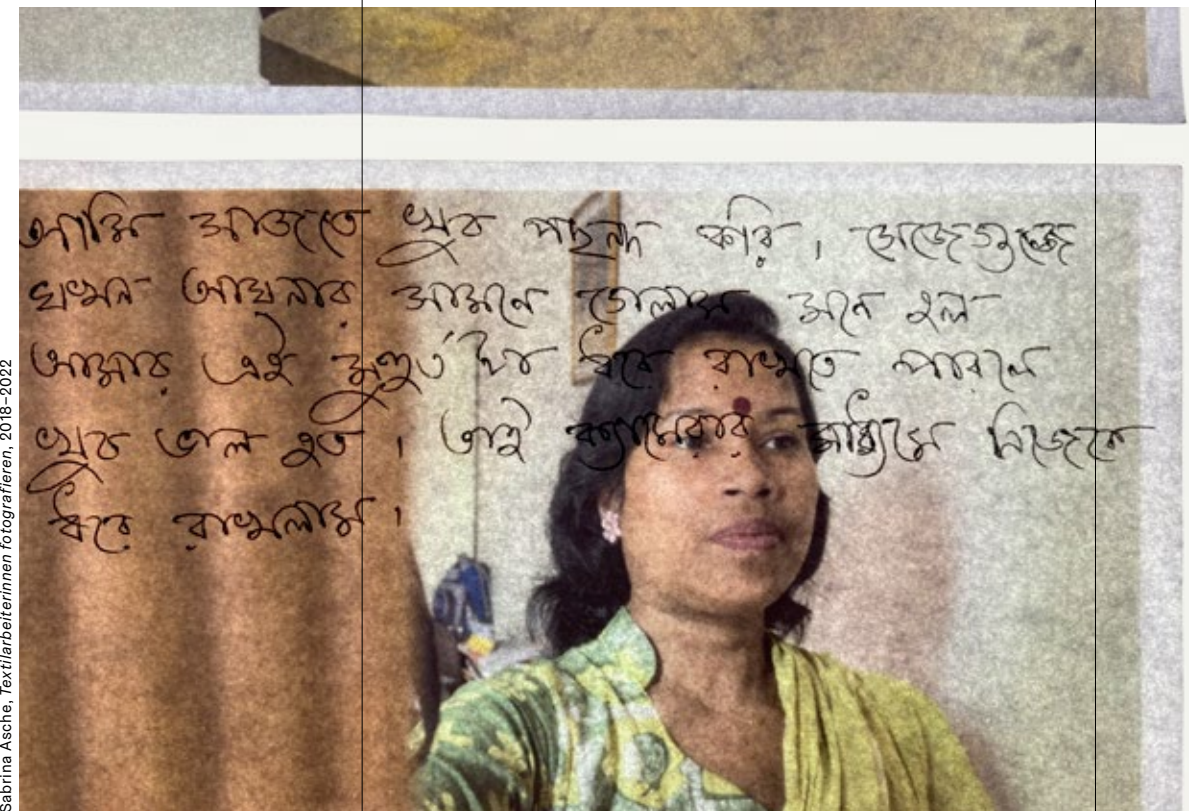 আমি সাজতে খুব পছন্দ করি। সেজেগুজে
যখন আয়নার সামনে গেলাম মনে হল
আমার এই মুহুর্ত টা ধরে রাখতে পারলে
খুব ভাল হত। তাই ক্যামেরার মাধ্যমে নিজেকে
ধরে রাখলাম।
Sabrina Asche, Textilarbeiterinnen fotografieren, 2018–2022